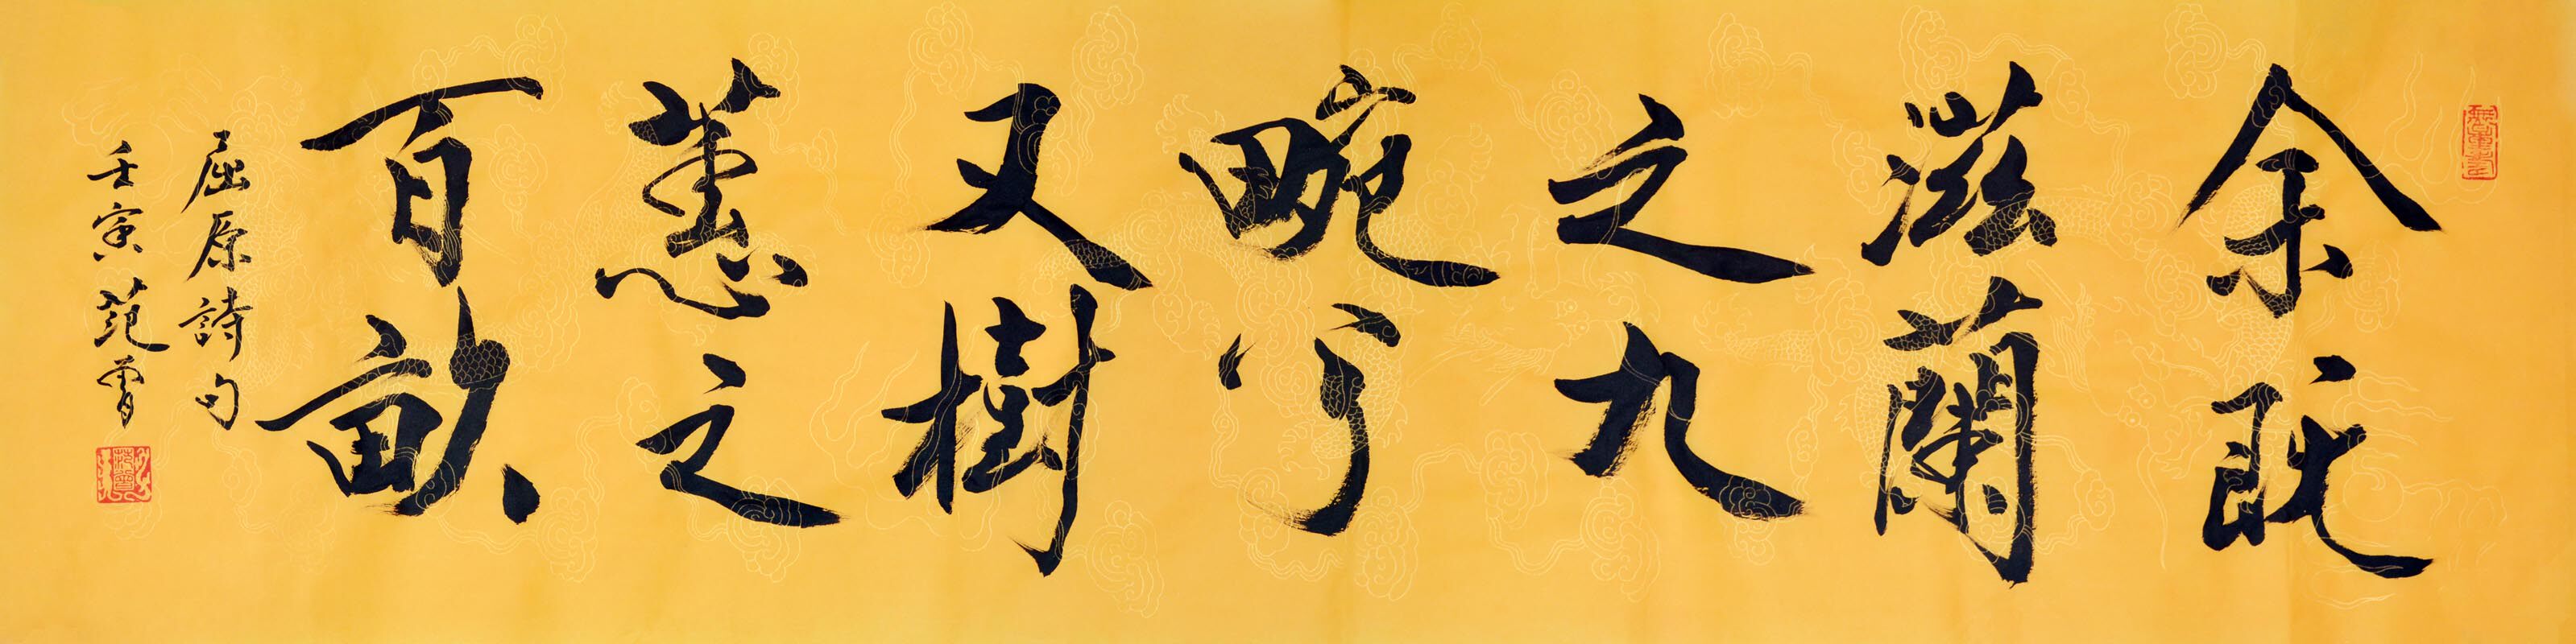 余既
滋蘭
之九
畹兮
又樹
蕙之
百畝
屈原詩句
壬寅范曾